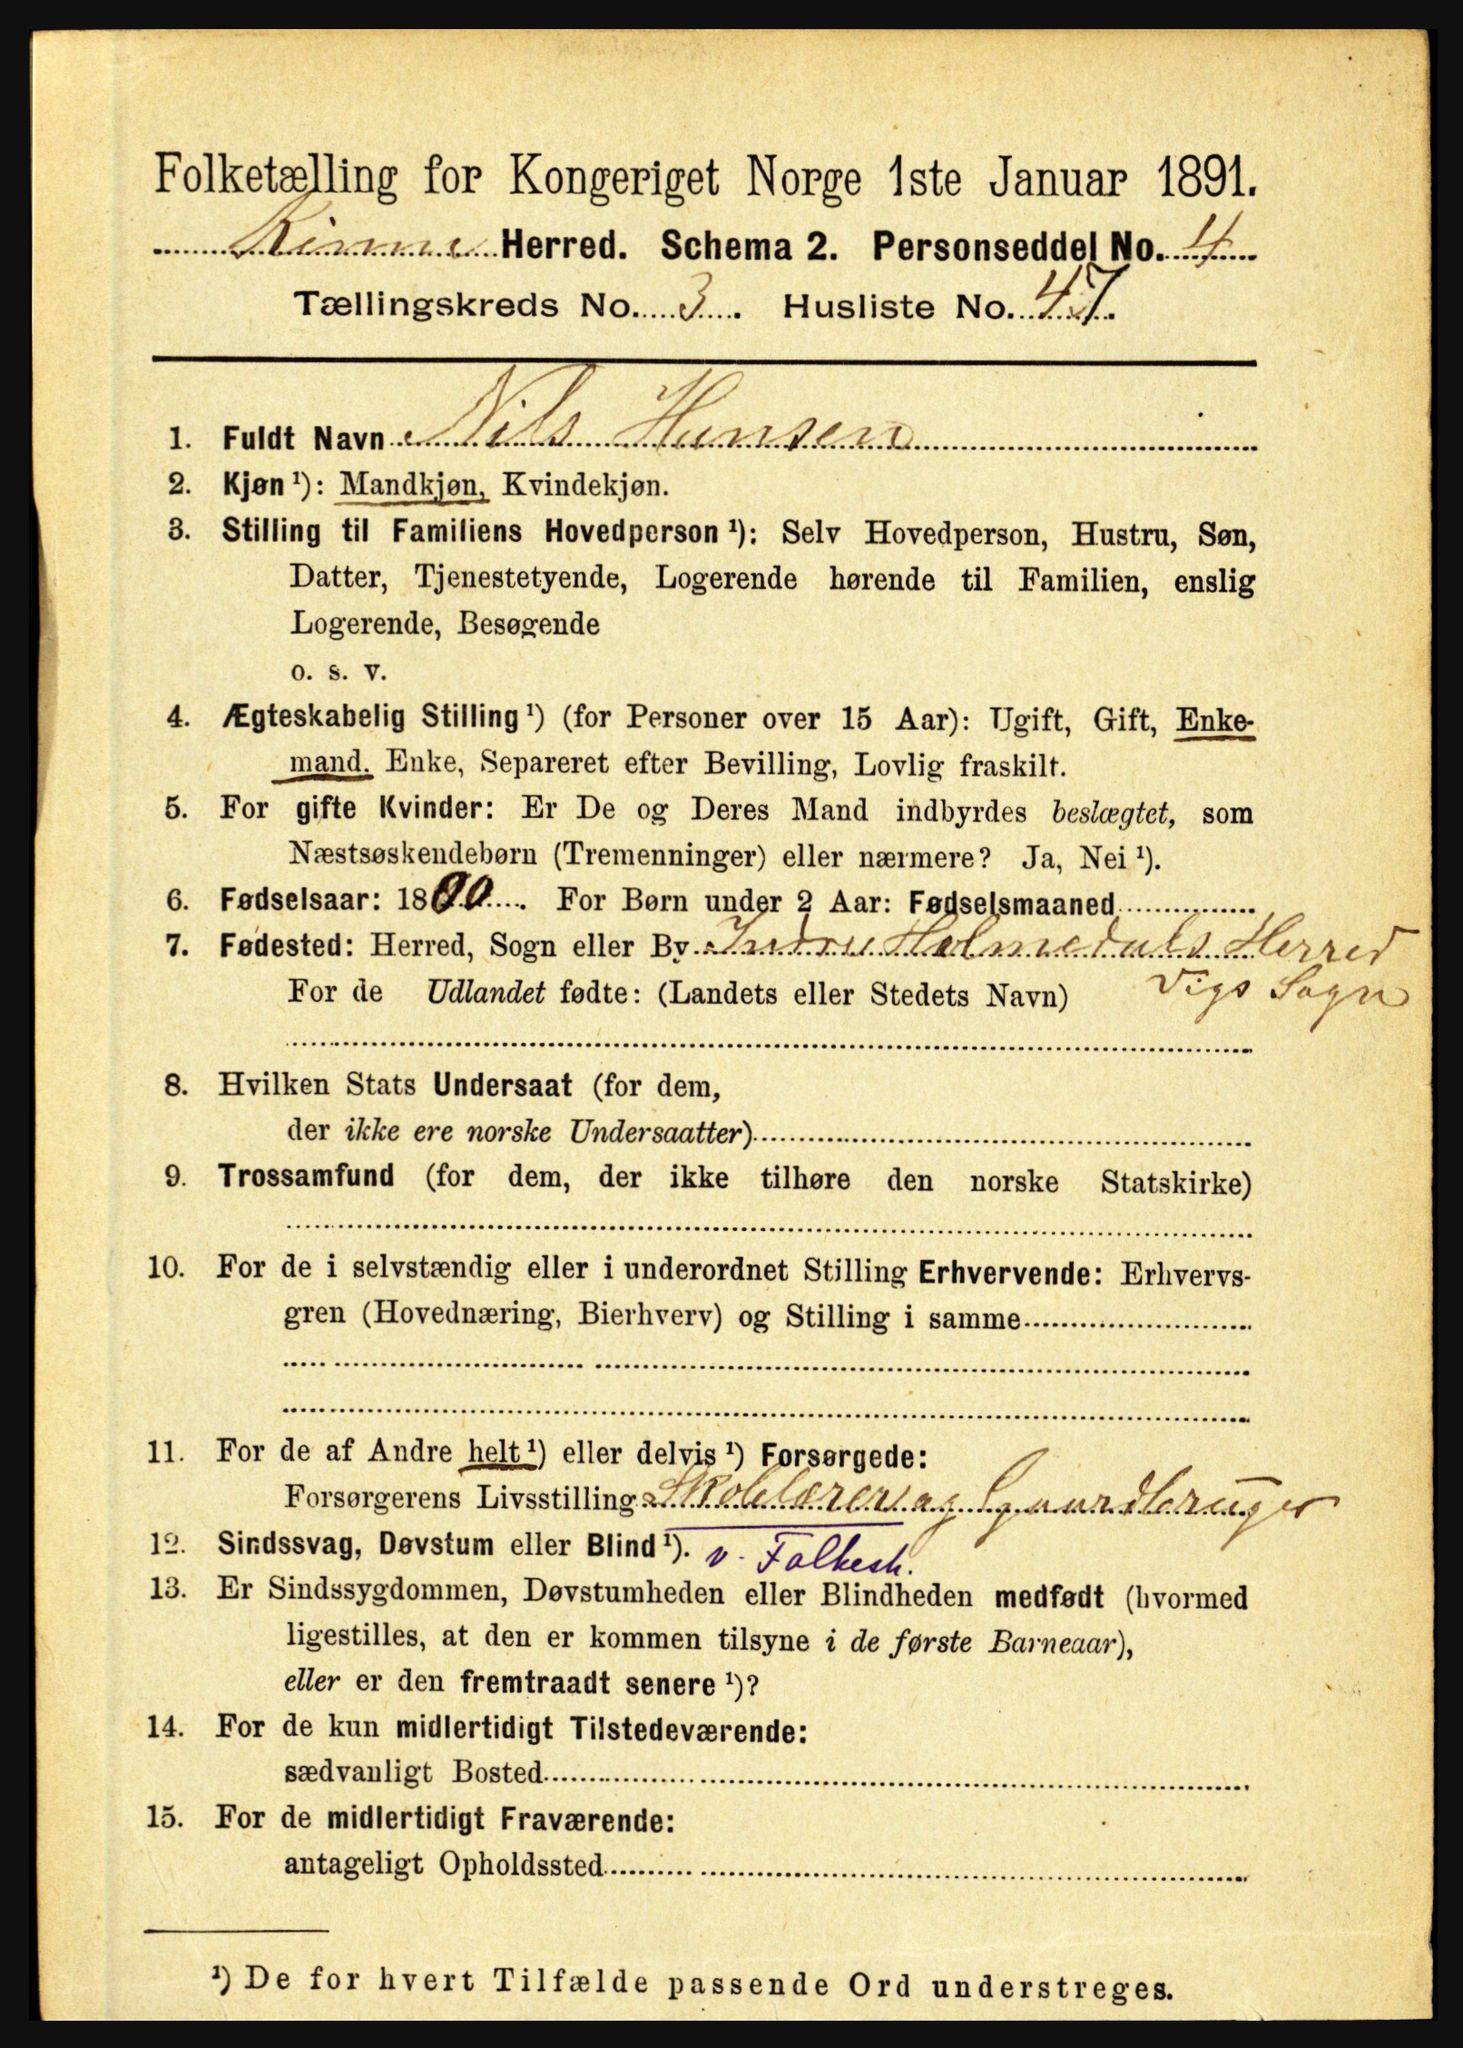 Folketælling for Kongeriget Norge 1ste Januar 1891.
Kinn Herred. Schema 2. Personseddel No. 4
Tællingskreds No. 3. Husliste No. 47.
1. Fuldt Navn Nils Hansen
2. Kjøn ¹): Mandkjøn, Kvindekjøn.
3. Stilling til Familiens Hovedperson ¹): Selv Hovedperson, Hustru, Søn,
Datter, Tjenestetyende, Logerende hørende til Familien, enslig
Logerende, Besøgende
o. s. v.
4. Ægteskabelig Stilling ¹) (for Personer over 15 Aar): Ugift, Gift, Enke-
mand, Enke, Separeret efter Bevilling, Lovlig fraskilt.
5. For gifte Kvinder: Er De og Deres Mand indbyrdes beslægtet, som
Næstsøskendebørn (Tremenninger) eller nærmere? Ja, Nei ¹).
6. Fødselsaar: 1800. For Børn under 2 Aar: Fødselsmaaned
7. Fødested: Herred, Sogn eller By Indre Holmedals Herred
For de Udlandet fødte: (Landets eller Stedets Navn) Vigs Sogn
8. Hvilken Stats Undersaat (for dem,
der ikke ere norske Undersaatter)
9. Trossamfund (for dem, der ikke tilhøre den norske Statskirke)
10. For de i selvstændig eller i underordnet Stilling Erhvervende: Erhvervs-
gren (Hovednæring, Bierhverv) og Stilling i samme
11. For de af Andre helt ¹) eller delvis ¹) Forsørgede:
Forsørgerens Livsstilling Skolelærer og Gaardbruger
12. Sindssvag, Døvstum eller Blind ¹). v. Folkesk.
13. Er Sindssygdommen, Døvstumheden eller Blindheden medfødt (hvormed
ligestilles, at den er kommen tilsyne i de første Barneaar),
eller er den fremtraadt senere ¹)?
14. For de kun midlertidigt Tilstedeværende:
sædvanligt Bosted
15. For de midlertidigt Fraværende:
antageligt Opholdssted
¹) De for hvert Tilfælde passende Ord understreges.